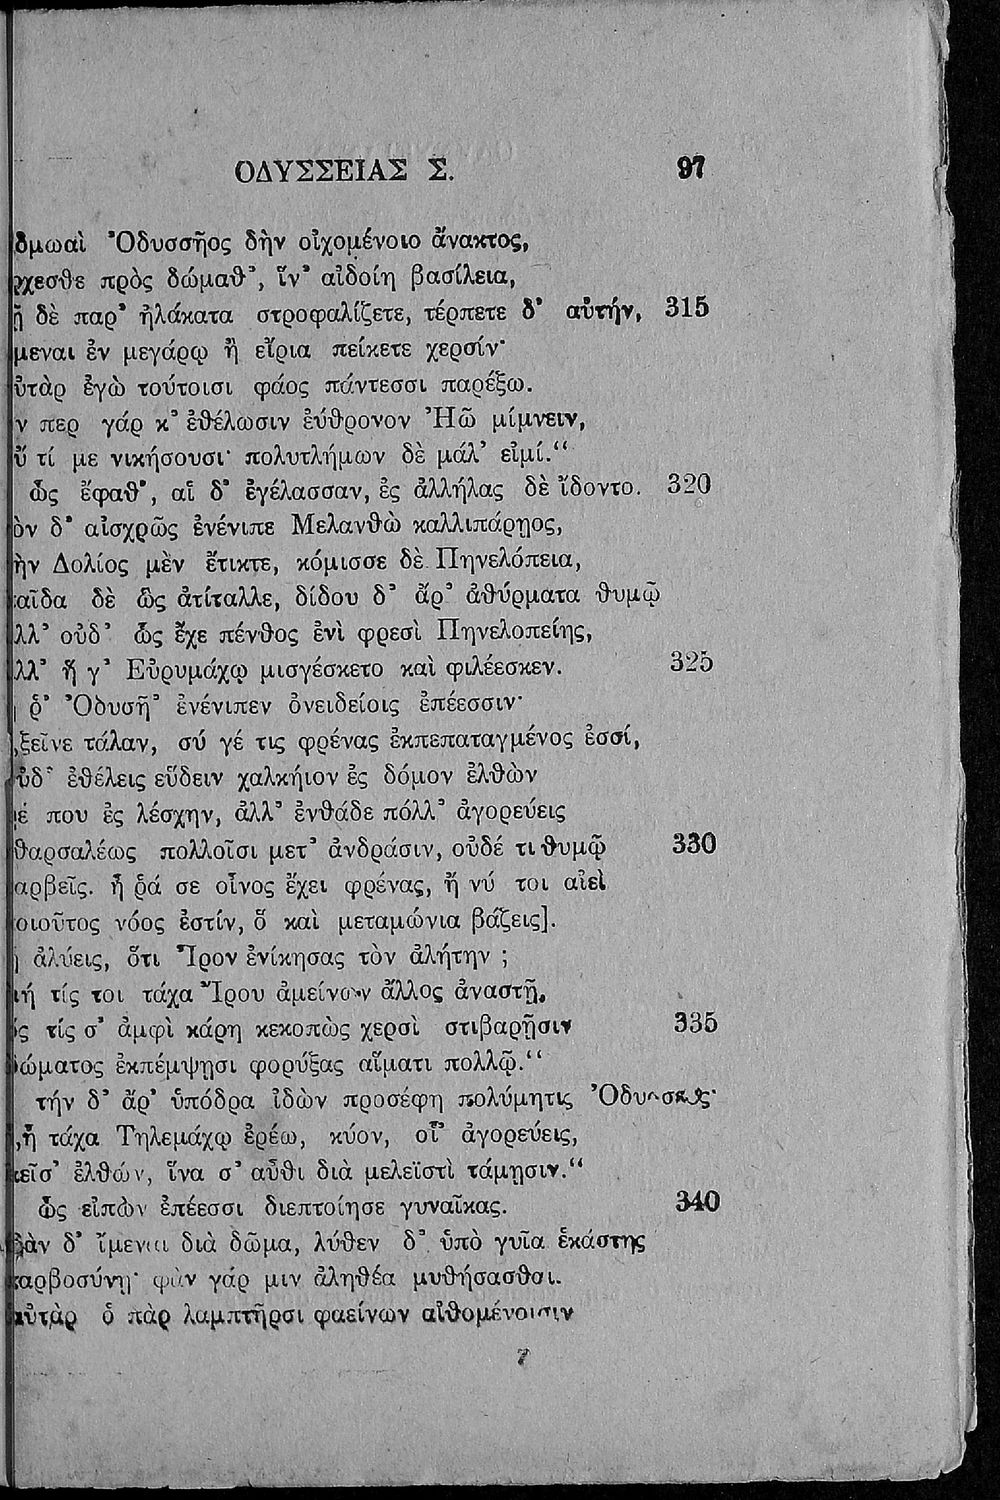 ΟΔΥΣΣΕΙΑΣ Σ. 97
δμωαὶ Ὀδυσσῆος δὴν οἰχομένοιο ἄνακτος,
ρχεσθε πρὸς δώμαθ᾽, ἵν᾽ αἰδοίη βασίλεια,
ῇ δὲ παρ᾽ ἠλάκατα στροφαλίζετε, τέρπετε δ᾽ αὐτήν, 315
μεναι ἐν μεγάρῳ ἢ εἴρια πείκετε χερσίν·
ὐτὰρ ἐγὼ τούτοισι φάος πάντεσσι παρέξω.
ν περ γάρ κ᾽ ἐθέλωσιν ἐύθρονον Ἠῶ μίμνειν,
ὔ τί με νικήσουσι· πολυτλήμων δὲ μάλ᾽ εἰμί.“
ὣς ἔφαθ᾽, αἱ δ᾽ ἐγέλασσαν, ἐς ἀλλήλας δὲ ἴδοντο. 320
ὸν δ᾽ αἰσχρῶς ἐνένιπε Μελανθὼ καλλιπάρῃος,
ὴν Δολίος μὲν ἔτικτε, κόμισσε δὲ Πηνελόπεια,
αῖδα δὲ ὣς ἀτίταλλε, δίδου δ᾽ ἄρ᾽ ἀθύρματα θυμῷ
λλ᾽ οὐδ᾽ ὣς ἔχε πένθος ἐνὶ φρεσὶ Πηνελοπείης,
λλ᾽ ἥ γ᾽ Εὐρυμάχῳ μισγέσκετο καὶ φιλέεσκεν. 325
ῥ᾽ Ὀδυσῆ᾽ ἐνένιπεν ὀνειδείοις ἐπέεσσιν·
„ξεῖνε τάλαν, σύ γέ τις φρένας ἐκπεπαταγμένος ἐσσί,
ὐδ᾽ ἐθέλεις εὕδειν χαλκήιον ἐς δόμον ἐλθὼν
έ που ἐς λέσχην, ἀλλ᾽ ἐνθάδε πόλλ᾽ ἀγορεύεις
θαρσαλέως πολλοῖσι μετ᾽ ἀνδράσιν, οὐδέ τι θυμῷ 330
αρβεῖς. ἦ ῥά σε οἶνος ἔχει φρένας, ἤ νύ τοι αἰεὶ
οιοῦτος νόος ἐστίν, ὃ καὶ μεταμώνια βάζεις].
ἀλύεις, ὅτι Ἶρον ἐνίκησας τὸν ἀλήτην ;
ή τίς τοι τάχα Ἴρου ἀμείνων ἄλλος ἀναστῇ,
ς τίς σ᾽ ἀμφὶ κάρη κεκοπὼς χερσὶ στιβαρῇσιν 335
ώματος ἐκπέμψῃσι φορύξας αἵματι πολλῷ.“
τήν δ᾽ ἄρ᾽ ὑπόδρα ἰδὼν προσέφη πολύμητις Ὀδυσσεύς·
„ἦ τάχα Τηλεμάχῳ ἐρέω, κύον, οἷ᾽ ἀγορεύεις,
εῖσ᾽ ἐλθών, ἵνα σ᾽ αὖθι διὰ μελεϊστὶ τάμῃσιν.“
ὣς εἰπὼν ἐπέεσσι διεπτοίησε γυναῖκας. 340
βὰν δ᾽ ἴμεναι διὰ δῶμα, λύθεν δ᾽ ὑπὸ γυῖα ἑκάστης
αρβοσύνῃ· φὰν γάρ μιν ἀληθέα μυθήσασθαι.
αὐτὰρ ὁ πὰρ λαμπτῆρσι φαείνων αἰθομένοισιν
7